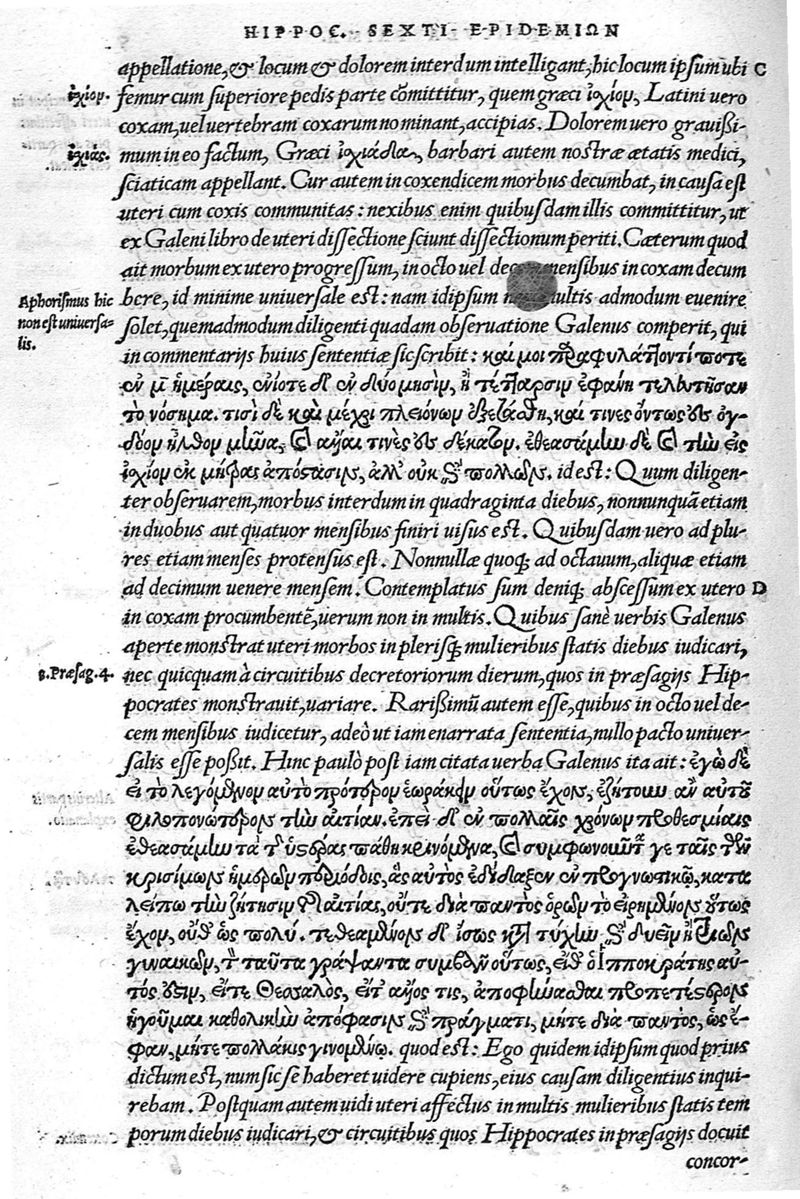 HIPPOC. SEXTI EPIDEMIΩN
appellatione, & locum & dolorem interdum intelligant, hic locum ipsum ubi C
ἰχίομ. femur cum superiore pedis parte cōmittitur, quem græci ἰοχίομ, Latini uero
coxam, uel uertebram coxarum nominant, accipias. Dolorem uero grauißi-
ἰχιάς. mum in eo factum, Græci ἰοχιάδα, barbari autem nostræ ætatis medici,
sciaticam appellant. Cur autem in coxendicem morbus decumbat, in causa est
uteri cum coxis communitas: nexibus enim quibusdam illis committitur, ut
ex Galeni libro de uteri dissectione sciunt dissectionum periti. Cæterum quod
ait morbum ex utero progressum, in octo uel mensibus in coxam decum
Aphorismus hic bere, id minime uniuersale est: nam idipsum multis admodum euenire
non est uniuersa- solet, quemadmodum diligenti quadam obseruatione Galenus comperit, qui
lis. in commentarijs huius sententiæ sic scribit: καί μοι παραφυλάττοντί ποτε
ἐν μ̄ ἡμέραις, ἐνίοτε δὲ ἐν δύο μησὶμ, ἢ τέτταρσιμ ἐφάνη τελευτῆσαν
τὸ νόσημα. τισὶ δὲ καὶ μέχρι πλειόνωμ ἐξετάθη, καί τινες ὄντως εἰς ὄγ-
δοομ ἦλθομ μῆνα, καὶ ἄλλαι τινὲς εἰς δέκατομ. ἐθεασάμην δὲ καὶ τὴν εἰς
ἰοχίομ ἐκ μήτρας ἀπόστασιμ, ἀλλ' οὐκ ἐπὶ πολλῶμ. id est: Quum diligen-
ter obseruarem, morbus interdum in quadraginta diebus, nonnunquā etiam
in duobus aut quatuor mensibus finiri uisus est. Quibusdam uero ad plu-
res etiam menses protensus est. Nonnullæ quoq; ad octauum, aliquæ etiam
ad decimum uenere mensem. Contemplatus sum deniq; abscessum ex utero D
in coxam procumbentē, uerum non in multis. Quibus sanè uerbis Galenus
aperte monstrat uteri morbos in plerisq; mulieribus statis diebus iudicari,
8. Præsag. 4. nec quicquam à circuitibus decretoriorum dierum, quos in præsagijs Hip-
pocrates monstrauit, uariare. Rarißimū autem esse, quibus in octo uel de-
cem mensibus iudicetur, adeò ut iam enarrata sententia, nullo pacto uniuer-
salis esse poßit. Hinc paulò post iam citata uerba Galenus ita ait: ἐγὼ δὲ
εἰ τὸ λεγόμενομ αὐτὸ πρότερομ ἑωράκειμ οὕτως ἔχομ, ἐζήτουμ ἂν αὐτοῦ
φιλοπονώτερομ τὴν αἰτίαν. ἐπεὶ δὲ ἐν πολλαῖς χρόνωμ προθεσμίαις
ἐθεασάμην τὰ τῆς ὑστέρας πάθη κρινόμενα, καὶ συμφωνοῦντά γε ταῖς τῶν
κρισίμωμ ἡμερῶμ περιόδοις, ἃς αὐτὸς ἐδίδαξεν ἐν προγνωστικῷ, κατα
λείπω τὴν ζήτησιμ τῆς αἰτίας, οὔτε διὰ παντὸς ὁρῶμ τὸ εἰρημένομ οὕτως
ἔχομ, οὔθ' ὡς πολύ. τεθεαμένομ δὲ ἴσως κατὰ τύχην ἐπὶ δυεῖμ ἢ τριῶμ
γυναικῶμ, τὸν ταῦτα γράψαντα συμβὰν οὕτως, εἴθ' ὁ Ἱπποκράτης αὐ-
τός ἐστιμ, εἴτε Θεσσαλὸς, εἴτ' ἄλλος τις, ἀποφήνασθαι προπετέστερομ
ἡγοῦμαι καθολικὴν ἀπόφασιμ ἐπὶ πράγματι, μήτε διὰ παντὸς, ὡς ἔ-
φαν, μήτε πολλάκις γινομένῳ. quod est: Ego quidem idipsum quod prius
dictum est, num sic se haberet uidere cupiens, eius causam diligentius inqui-
rebam. Postquam autem uidi uteri affectus in multis mulieribus statis tem
porum diebus iudicari, & circuitibus quos Hippocrates in præsagijs docuit
concor-